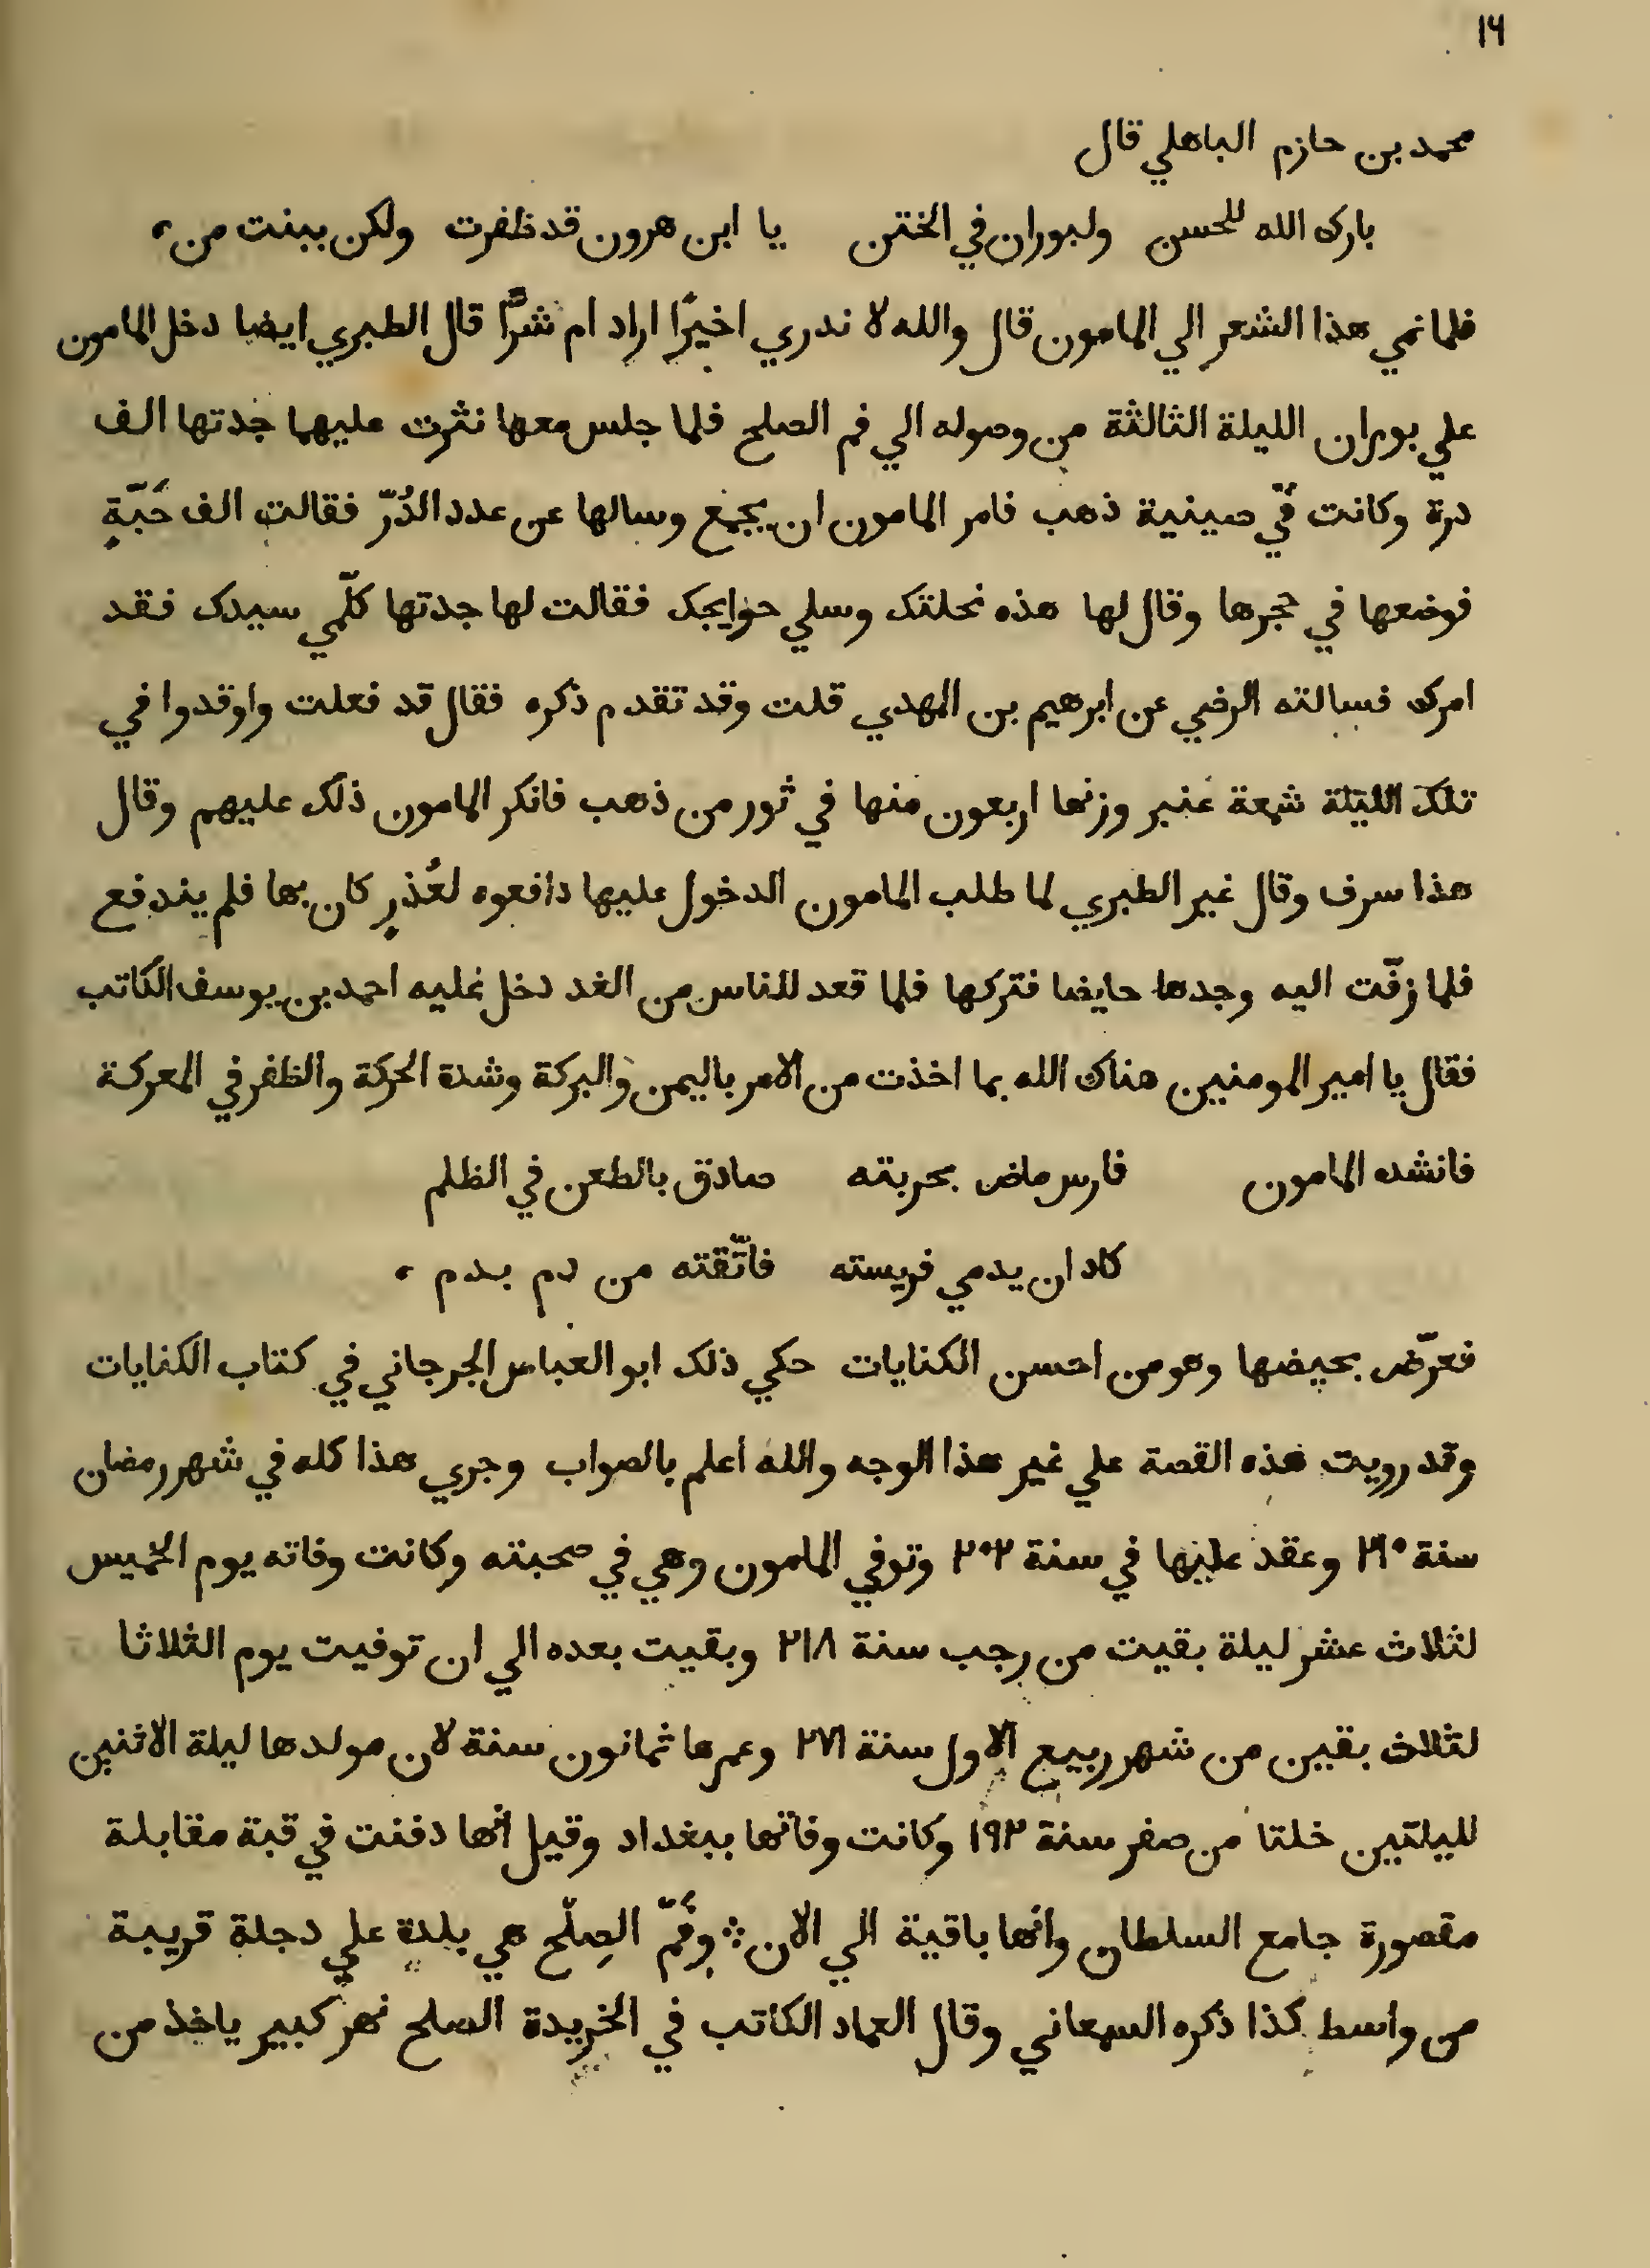 ١٦
محمد بن حازم الباهلي قال
بارك الله للحسن ولبوران في الختن يا ابن هرون قد ظفرت ولكن ببنت من،
فلما نمي هذا الشعر الي المامون قال والله لا ندري اخيرًا اراد ام شرًّا قال الطبري ايضا دخل المامون
علي بوران الليلة الثالثة من وصوله الي فم الصلح فلما جلس معها نثرت عليهما جدتها الف
درة وكانت في صينية ذهب فامر المامون ان يجمع وسالها عن عدد الدُرّ فقالت الف حَبّةٍ
فوضعها في حجرها وقال لها هذه نحلتك وسلي حوايجك فقالت لها جدتها كلّمي سيدك فقد
امرك فسالته الرضي عن ابرهيم بن المهدي قلت وقد تقدم ذكره فقال قد فعلت واوقدوا في
تلك الليلة شمعة عنبر وزنها اربعون منها في ثور من ذهب فانكر المامون ذلك عليهم وقال
هذا سرف وقال غير الطبري لما طلب المامون الدخول عليها دافعوه لعُذرٍ كان بها فلم يندفع
فلما زفّت اليه وجدها حايضا فتركها فلما قعد للناس من الغد دخل عليه احمد بن يوسف الكاتب
فقال يا امير المومنين هناك الله بما اخذت من الامر باليمن والبركة وشدة الحركة والظفر في المعركة
فانشده المامون فارس ماض بحربته صادق بالطعن في الظلم
كاد ان يدمي فريسته فاتّقته من دم بدم ،
فعرّض بحيضها وهو من احسن الكنايات حكي ذلك ابو العباس الجرجاني في كتاب الكنايات
وقد رويت هذه القصة علي غير هذا الوجه والله اعلم بالصواب وجري هذا كله في شهر رمضان
سنة ٢١٠ وعقد عليها في سنة ٢٠٢ وتوفي المامون وهي في صحبته وكانت وفاته يوم الخميس
لثلاث عشر ليلة بقيت من رجب سنة ٢١٨ وبقيت بعده الي ان توفيت يوم الثلاثا
لثلاث بقين من شهر ربيع الاول سنة ٢٧١ وعمرها ثمانون سنة لان مولدها ليلة الاثنين
لليلتين خلتا من صفر سنة ١٩٢ وكانت وفاتها ببغداد وقيل انها دفنت في قبة مقابلة
مقصورة جامع السلطان وانها باقية الي الان ∴ وفَمّ الصِلح هي بلدة علي دجلة قريبة
من واسط كذا ذكره السمعاني وقال العماد الكاتب في الخريدة الصلح نهر كبير ياخذ من